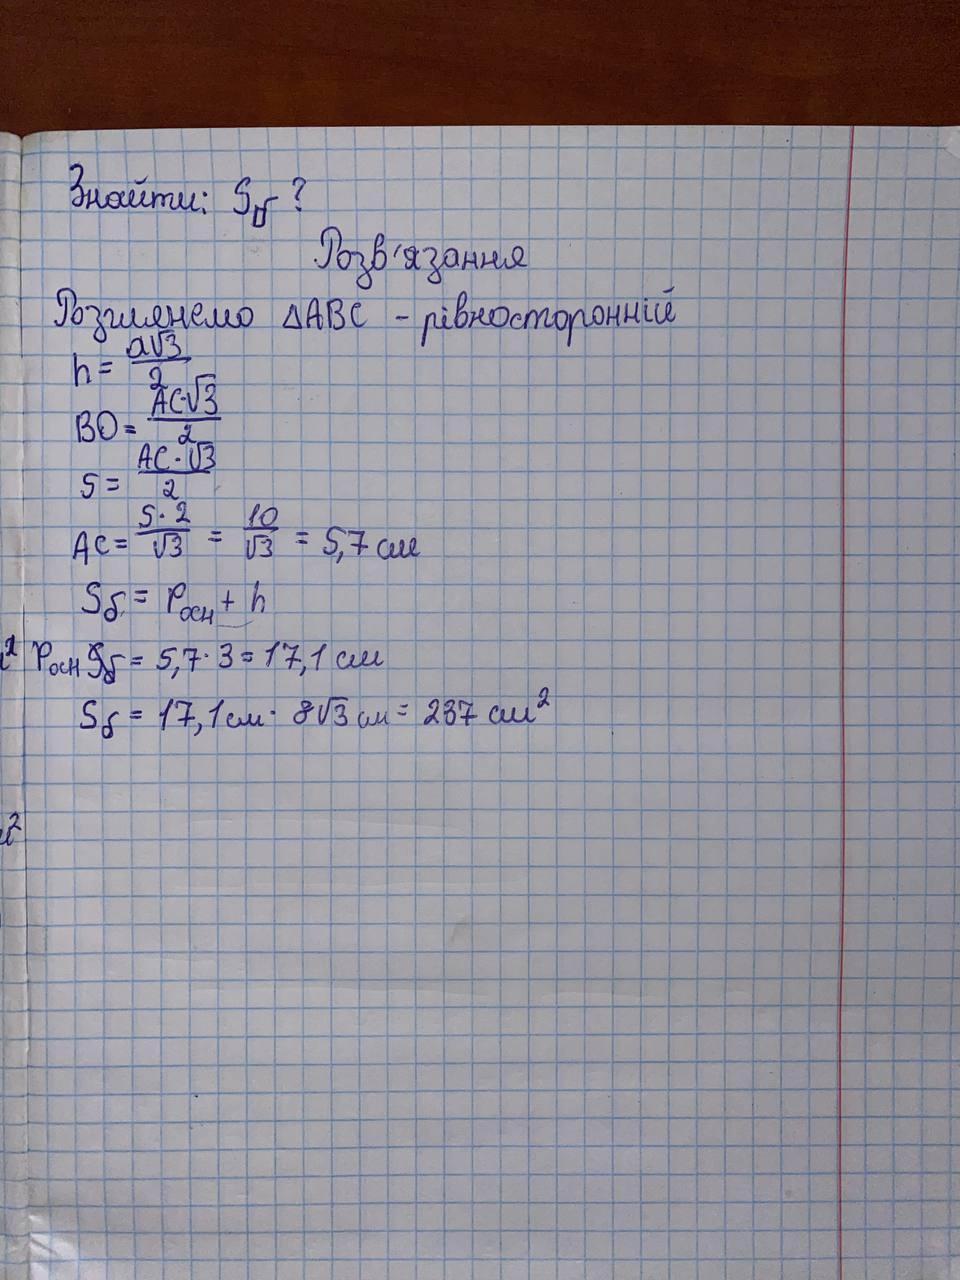 Знайти: Sб ?
Розв'язання
Розглянемо ΔABC - рівносторонній
h = a√3/2
BO = AC·√3/2
5 = AC·√3/2
AC = 5·2/√3 = 10/√3 = 5,7 см
Sб = Pосн + h
Pосн Sб = 5,7·3 = 17,1 см
Sб = 17,1 см · 8√3 см = 237 см²